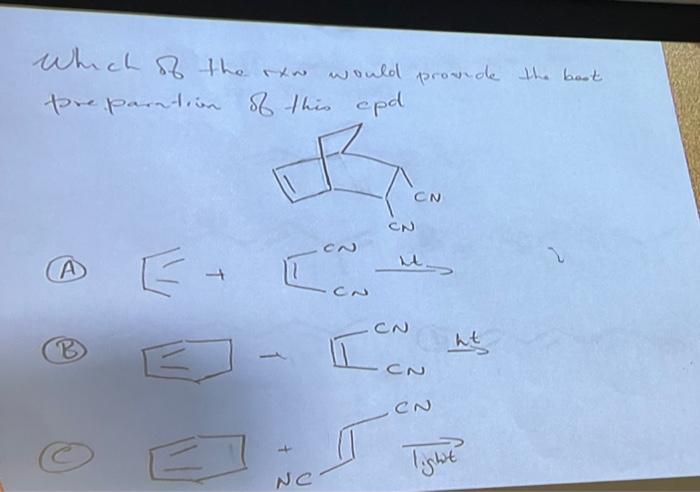 Which of the rxn would provide the best
preparation of this cpd
CN
CN
(A) + CN CN ht
(B) CN CN ht
(C) + CN NC light